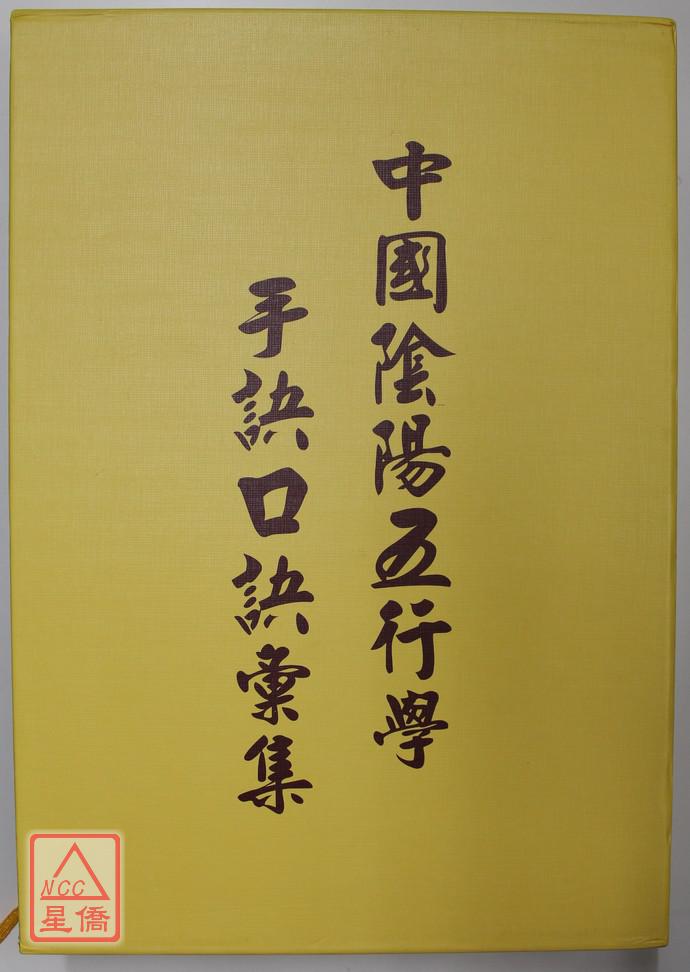 中國陰陽五行學
手訣口訣彙集
NCC
星僑